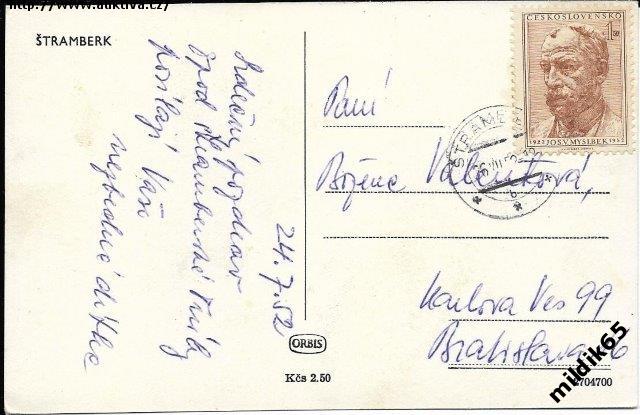 http://www.auktiva.cz/
ŠTRAMBERK
Srdečný pozdrav
spod štramberské Trúby
posílají Vaši
24.7.52
ČESKOSLOVENSKO
1.50
1922 JOS.V.MYSLBEK 1952
ŠTRAMBE
Paní
Božena Valentová,
Karlova Ves 99
Bratislava
ORBIS
Kčs 2.50
2704700
mildik65